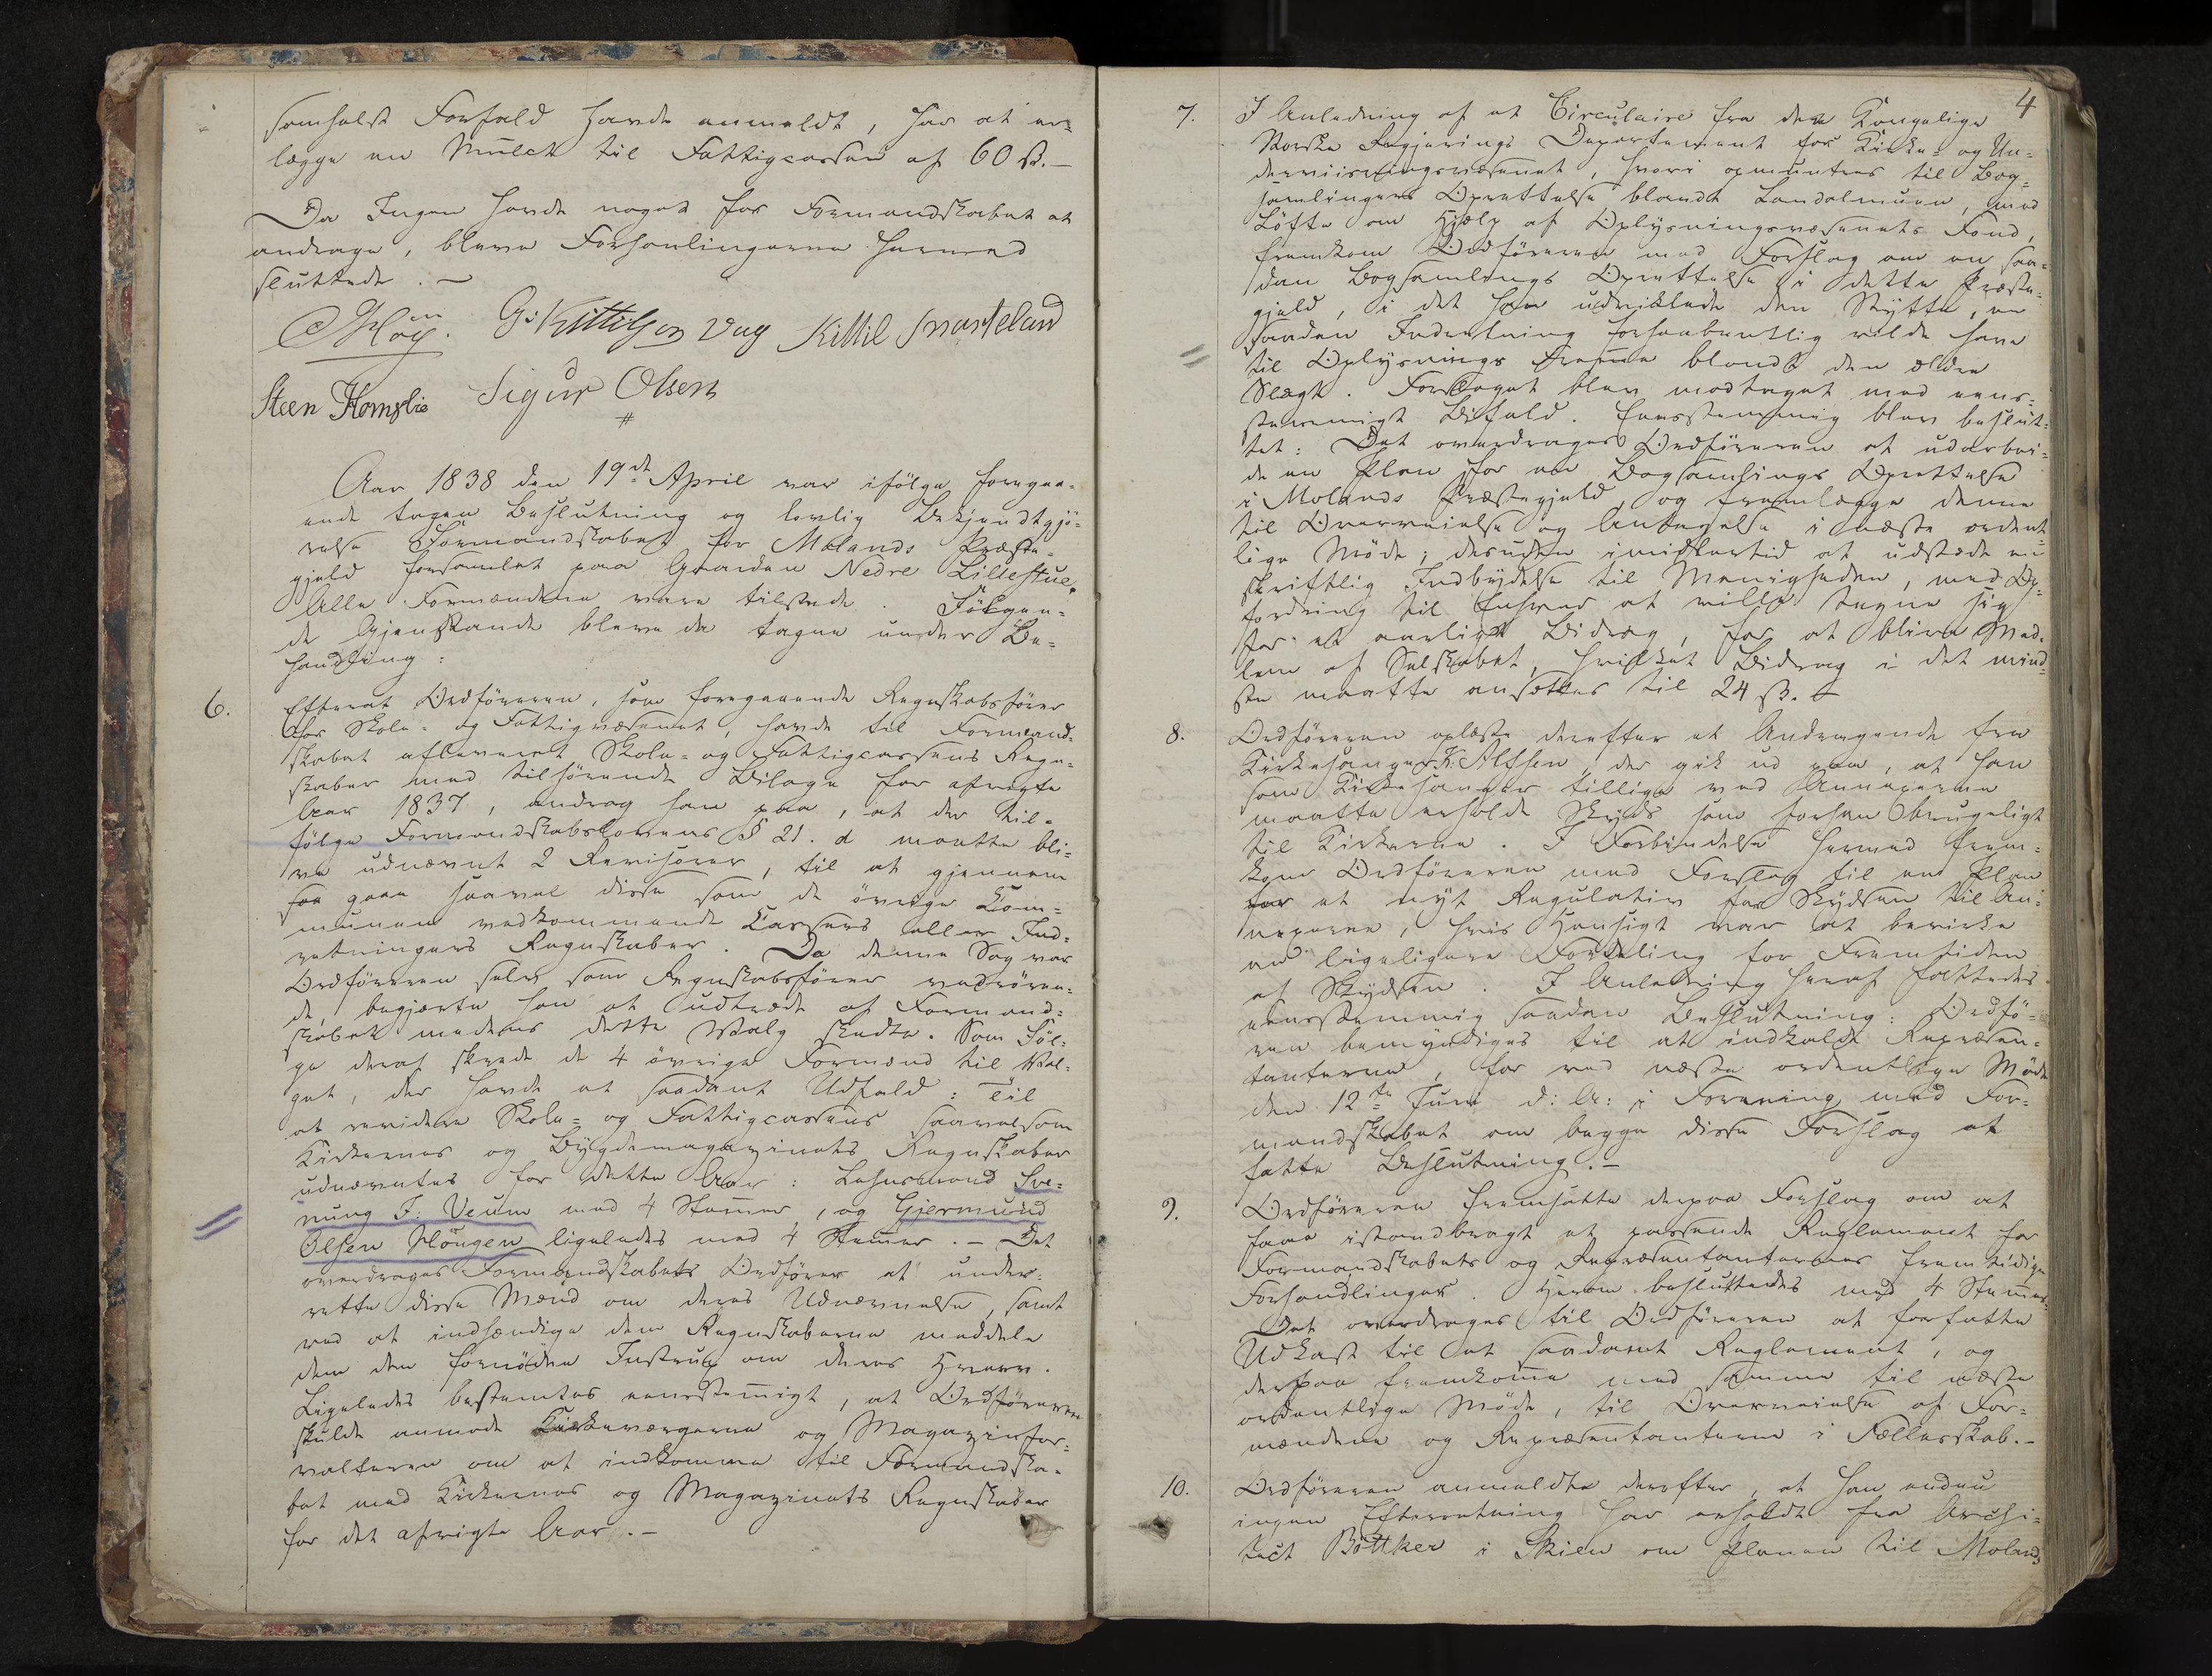 somhelst Forfald havde anmeldt, har at er-
lægge en Mulct til Fattigcassen af 60 ß.-
Da Ingen havde noget for Formandskabet at
andrage, bleve Forhandlingerne hermed
sluttede. -
G: Kittilsen Vaa Kittil Svarteland
Steen Homslie Sigur Olsen
#
Aar 1838 den 19de April var ifölge foregaa-
ende tagen Beslutning og lovlig Bekjendtgjö-
relse Formandskabet for Molands Præste-
gjeld forsamlet paa Gaarden Nedre Lillestue.
Alle Formændene vare tilstede. Fölgen-
de Gjenstande bleve da tagne under Be-
handling:
6. Efterat Ordföreren, som foregaaende Regnskabsförer
for Skole- og Fattigvæsenet, havde til Formand-
skabet afleveret Skole- og Fattigcassens Regn-
skaber med tilhörende Bilage for afvigte
Aar 1837, androg han paa, at der til-
fölge Formandskabslovens § 21. d maatte bli-
ve udnævnt 2 Revisorer, til at gjennem
saa gaae saavel disse som de övrige Com-
munen vedkommende Cassers eller Ind-
retningers Regnskaber. Da denne Sag var
Ordföreren selv som Regnskabsförer vedrören-
de, begjærte han at udtræde af Formand-
skabet medens dette Valg skedte. Som Föl-
ge deraf skrede de 4 övrige Formænd til Val-
get, der havde et saadant Udfald: Til
at revidere Skole- og Fattigcassens saavelsom
Kirkernes og Bygdemagazinets Regnskaber
udnævntes for dette Aar: Lehnsmand Sve-
nung F: Veum med 4 Stemmer, og Gjermund
Olsen Höugen ligeledes med 4 Stemmer. - Det
overdroges Formandskabets Ordförer at under-
rette disse Mænd om deres Udnævnelse, samt
ved at indhændige dem Regnskaberne meddele
dem den fornödne Instrux om deres Hverv.
Ligeledes bestemtes eenstemmigt, at Ordföreren
skulde anmode Kirkeværgerne og Magazinfor-
valteren om at indkomme til Formandska-
bet med Kirkernes og Magazinets Regnskaber
for det afvigte Aar. -
4
7. I Anledning af et Circulaire fra den Kongelige
Norske Regjerings Departement for Kirke- og Un-
derviisningsvæsenet, hvori opmuntres til Bog-
samlingers Oprettelse blandt Landalmuen, med
Löfte om Hjælp af Oplysningsvæsenets Fond,
fremkom Ordföreren med Forslag om en saa-
dan Bogsamlings Oprettelse i dette Præste-
gjeld, i det han udviklede den Nytte, en
saadan Indretning forhaabentlig vilde have
til Oplysnings Fremme blandt den ældre
Slægt. Forslaget blev modtaget med eens-
stemmigt Bifald. Eensstemmig blev beslut-
tet: Det overdrages Ordföreren at udarbei-
de en Plan for en Bogsamlings Oprettelse
i Molands Præstegjeld, og fremlægge denne
til Overveielse og Antagelse i næste ordent-
lige Möde; desuden imidlertid at udstæde en
skriftlig Indbydelse til Menigheden, med Op-
fordring til Enhver at ville tegne sig
for et aarligt Bidrag, for at blive Med-
lem af Selskabet, hvilket Bidrag i det mind-
ste maatte ansættes til 24 ß. -
8. Ordföreren oplæste derefter et Andragende fra
Kirkesanger K: Alfsen, der gik ud paa, at han
som Kirkesanger tillige ved Annexerne
maatte erholde Skyds som forhen brugeligt
til Kirkerne. I Forbindelse hermed frem-
kom Ordföreren med Forslag til en Plan
for et nyt Regulativ for Skydsen til An-
nexerne, hvis Hensigt var at bevirke
en ligeligere Fordeling for Fremtiden
af Skydsen. I Anledning heraf fattedes
eensstemmig saadan Beslutning: Ordfö-
ren bemyndiges til at indkalde Repræsen-
tanterne, for ved næste ordentlige Möde
den 12te Juni d: A: i Forening med For-
mandskabet om begge disse Forslag at
fatte Beslutning. -
9. Ordföreren fremsatte derpaa Forslag om at
faae istandbragt et passende Reglement for
Formandskabets og Repræsentanternes fremtidige
Forhandlinger. Herom besluttedes med 4 Stemmer:
Det overdrages til Ordföreren at forfatte
Udkast til et saadant Reglement, og
derpaa fremkomme med samme til næste
ordentlige Möde, til Overveielse af For-
mændene og Repræsentanterne i Fællesskab. -
10. Ordföreren anmeldte derefter, at han endnu
ingen Efterretning har erholdt fra Archi-
tect Böttker i Skien om Planen til Molands